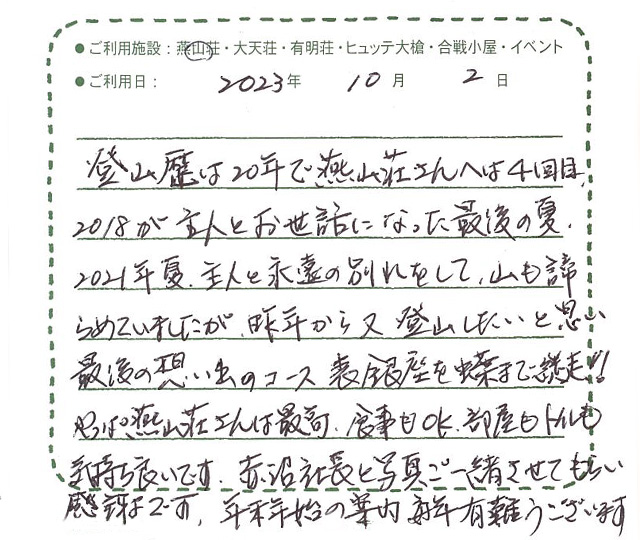 ●ご利用施設：燕山荘・大天荘・有明荘・ヒュッテ大槍・合戦小屋・イベント
●ご利用日： 2023年 10月 2日
登山歴は20年で燕山荘さんへは4回目、
2018が主人とお世話になった最後の夏.
2021年夏.主人と永遠の別れをして、山も諦
らめていましたが、昨年から又登山したいと思い
最後の想い出のコース表銀座を蝶まで縦走!!
やっぱ燕山荘さんは最高.食事もOK.部屋もトイレも
気持ち良いです.赤沼社長と写真ご一緒させてもらい
感謝です.年末年始の案内毎年有難うございます